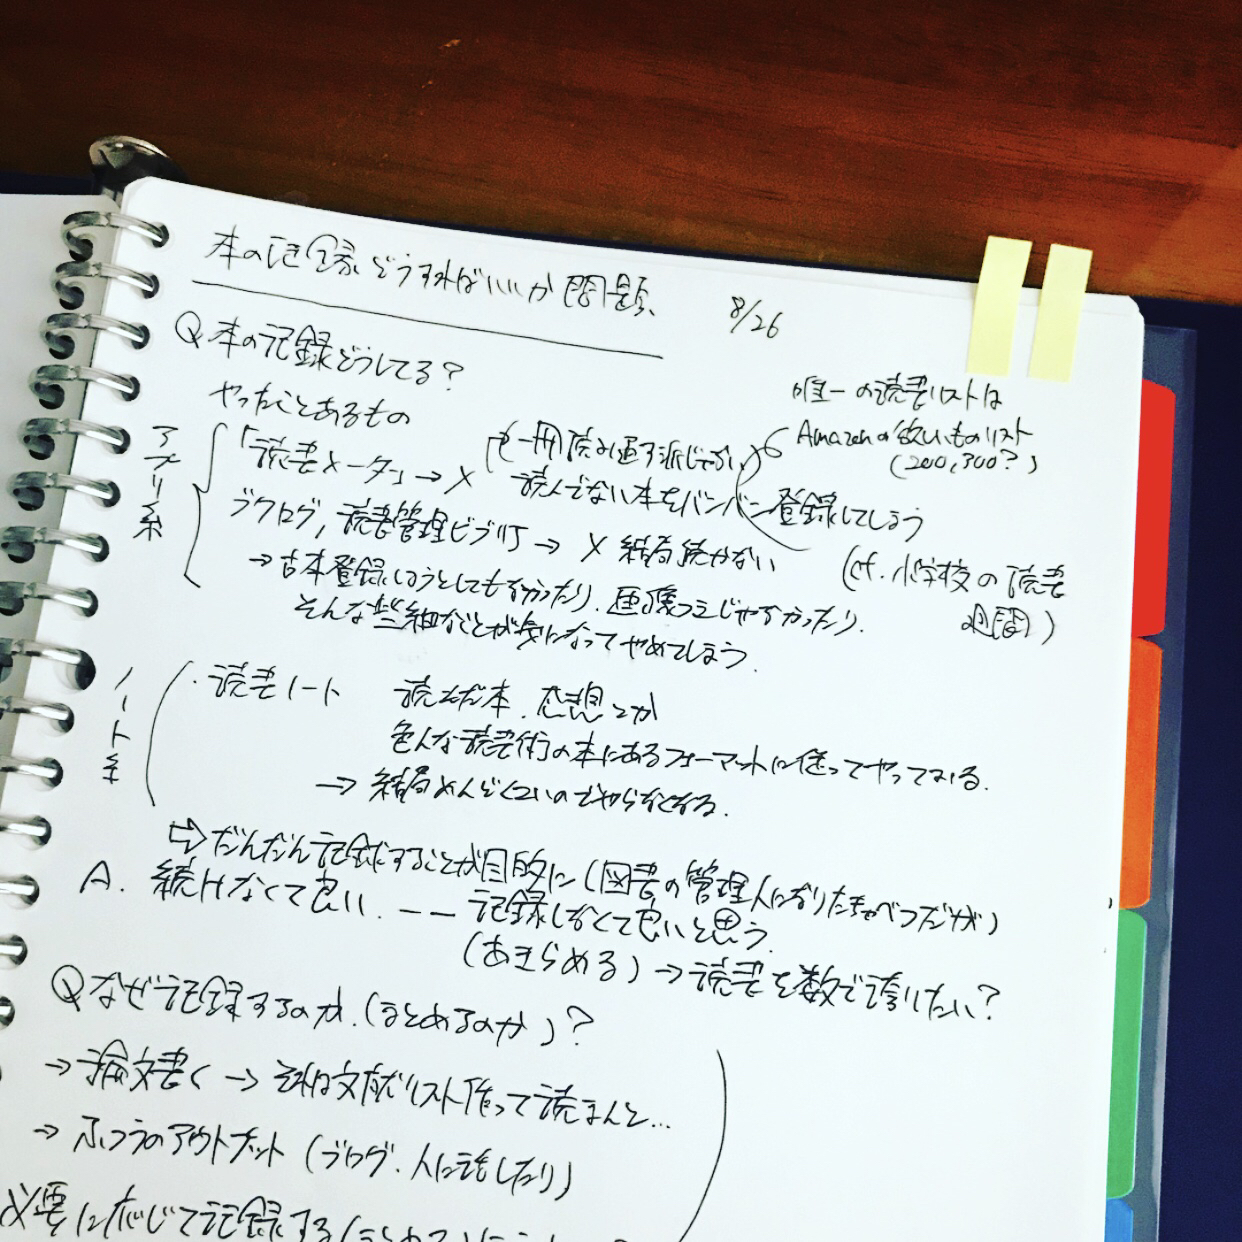 本の記録どうすればいいか問題 8/26
Q 本の記録どうしてる?
やったことあるもの
唯一の読書リストは
Amazonの欲しいものリスト
(200,300?)
アプリ系
「読書メーター」→ ×
(一冊読み通す派じゃない)
読んでない本をバンバン登録してしまう
(cf. 小学校の読書週間)
ブクログ, 読書管理ビブリア → × 結局続かない
→古本登録しようとしてもなかったり、画像つきじゃなかったり、
そんな些細なことが気になってやめてしまう。
ノート系
・読書ノート 読んだ本、感想とか
色んな読書術の本にあるフォーマットに従ってやってみる。
→ 結局めんどくさいのでやらなくなる。
⇨だんだん記録することが目的に(図書の管理人になりたきゃべつだが)
A. 続けなくて良い. —— 記録しなくて良いと思う.
(あきらめる) →読書を数で誇りたい?
Qなぜ記録するのか.(まとめるのか)?
→論文書く → それは文献リスト作って読まんと…
→ ふつうのアウトプット (ブログ、人に話したり)
必要に応じて記録する(まとめる)